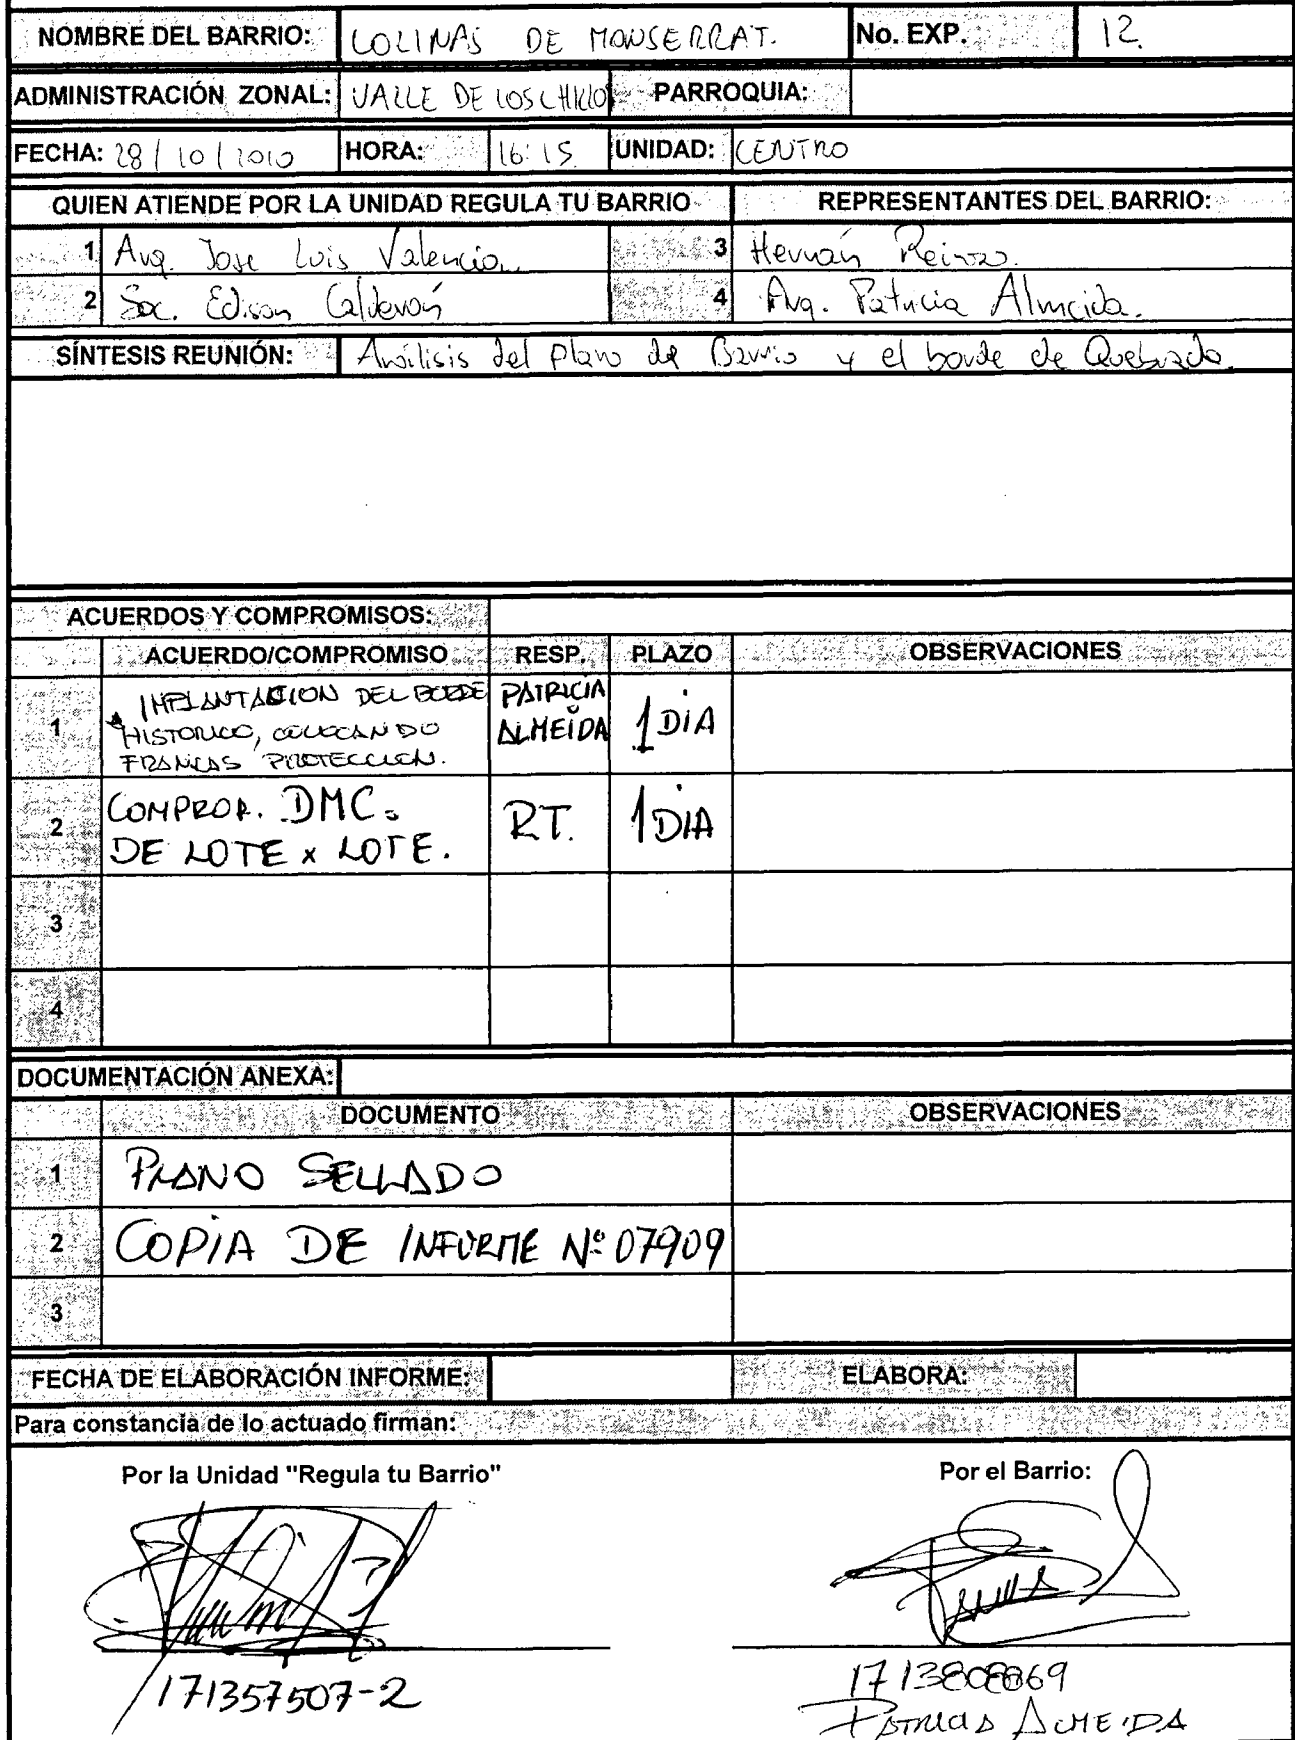 NOMBRE DEL BARRIO: COLINAS DE MONSERRAT. No. EXP. 12.
ADMINISTRACIÓN ZONAL: VALLE DE LOS CHILLO PARROQUIA:
FECHA: 28/10/2010 HORA: 16:15 UNIDAD: CENTRO
QUIEN ATIENDE POR LA UNIDAD REGULA TU BARRIO REPRESENTANTES DEL BARRIO:
1 Arq. Jose Luis Valencia. 3 Hernán
2 Soc. Edison Calderón 4 Arq. Patricia Almeida.
SÍNTESIS REUNIÓN: Análisis del plano de Barrio y el borde de Quebrada.
ACUERDOS Y COMPROMISOS:
ACUERDO/COMPROMISO RESP. PLAZO OBSERVACIONES
1 IMPLANTACION DEL BORDE PATRICIA ALMEIDA 1 DIA
HISTORICO, COLOCANDO
FRANJAS PROTECCION.
2 COMPROB. DMC. RT. 1 DIA
DE LOTE x LOTE.
3
4
DOCUMENTACIÓN ANEXA:
DOCUMENTO OBSERVACIONES
1 PLANO SELLADO
2 COPIA DE INFORME Nº 07909
3
FECHA DE ELABORACIÓN INFORME: ELABORA:
Para constancia de lo actuado firman:
Por la Unidad "Regula tu Barrio" Por el Barrio:
171357507-2
PATRICIA ALMEIDA